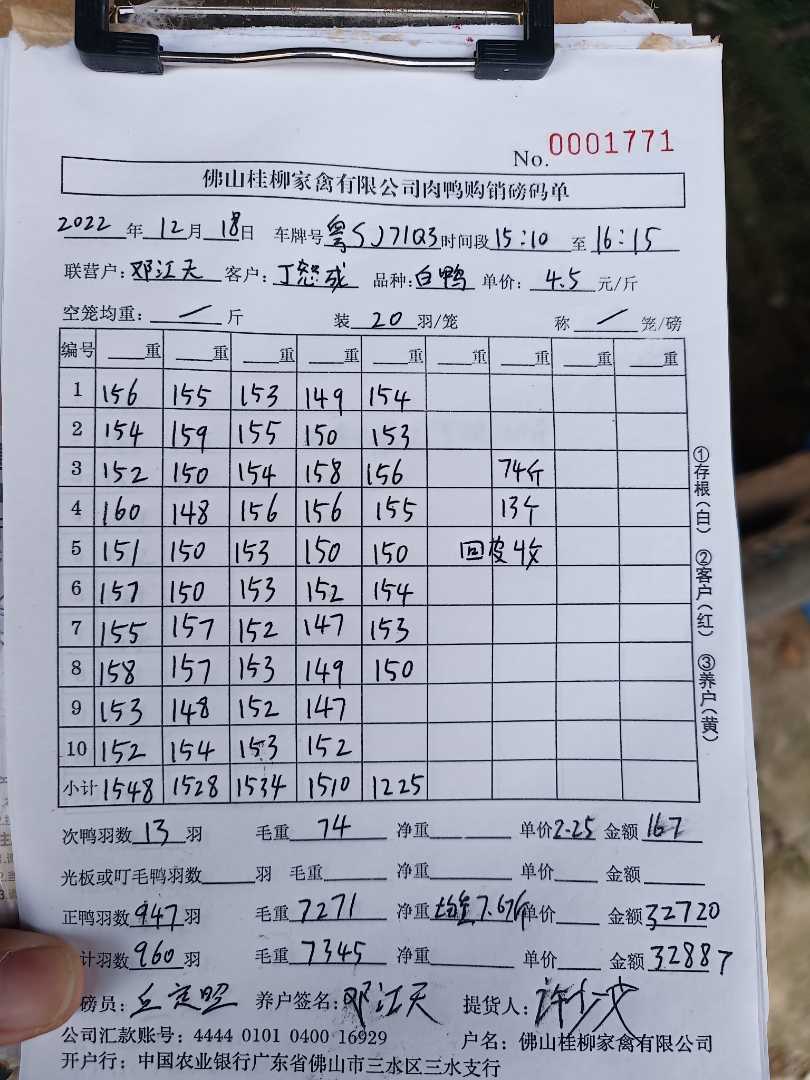 No. 0001771
佛山桂柳家禽有限公司肉鸭购销磅码单
2022 年 12 月 18 日 车牌号 粤SJ71Q3 时间段 15:10 至 16:15
联营户: 邓江天 客户: 丁怒成 品种: 白鸭 单价: 4.5 元/斤
空笼均重: / 斤 装 20 羽/笼 称 / 笼/磅
编号 重 重 重 重 重 重 重 重 重
1 156 155 153 149 154
2 154 159 155 150 153
3 152 150 154 158 156 74斤
4 160 148 156 156 155 13个
5 151 150 153 150 150 回皮4次
6 157 150 153 152 154
7 155 157 152 147 153
8 158 157 153 149 150
9 153 148 152 147
10 152 154 153 152
小计 1548 1528 1534 1510 1225
①存根(白) ②客户(红) ③养户(黄)
次鸭羽数 13 羽 毛重 74 净重 单价 2.25 金额 167
光板或叮毛鸭羽数 羽 毛重 净重 单价 金额
正鸭羽数 947 羽 毛重 7271 净重 均重7.67斤 单价 金额 32720
计羽数 960 羽 毛重 7345 净重 单价 金额 32887
磅员: 养户签名: 邓江天 提货人:
公司汇款账号: 4444 0101 0400 16929 户名: 佛山桂柳家禽有限公司
开户行: 中国农业银行广东省佛山市三水区三水支行